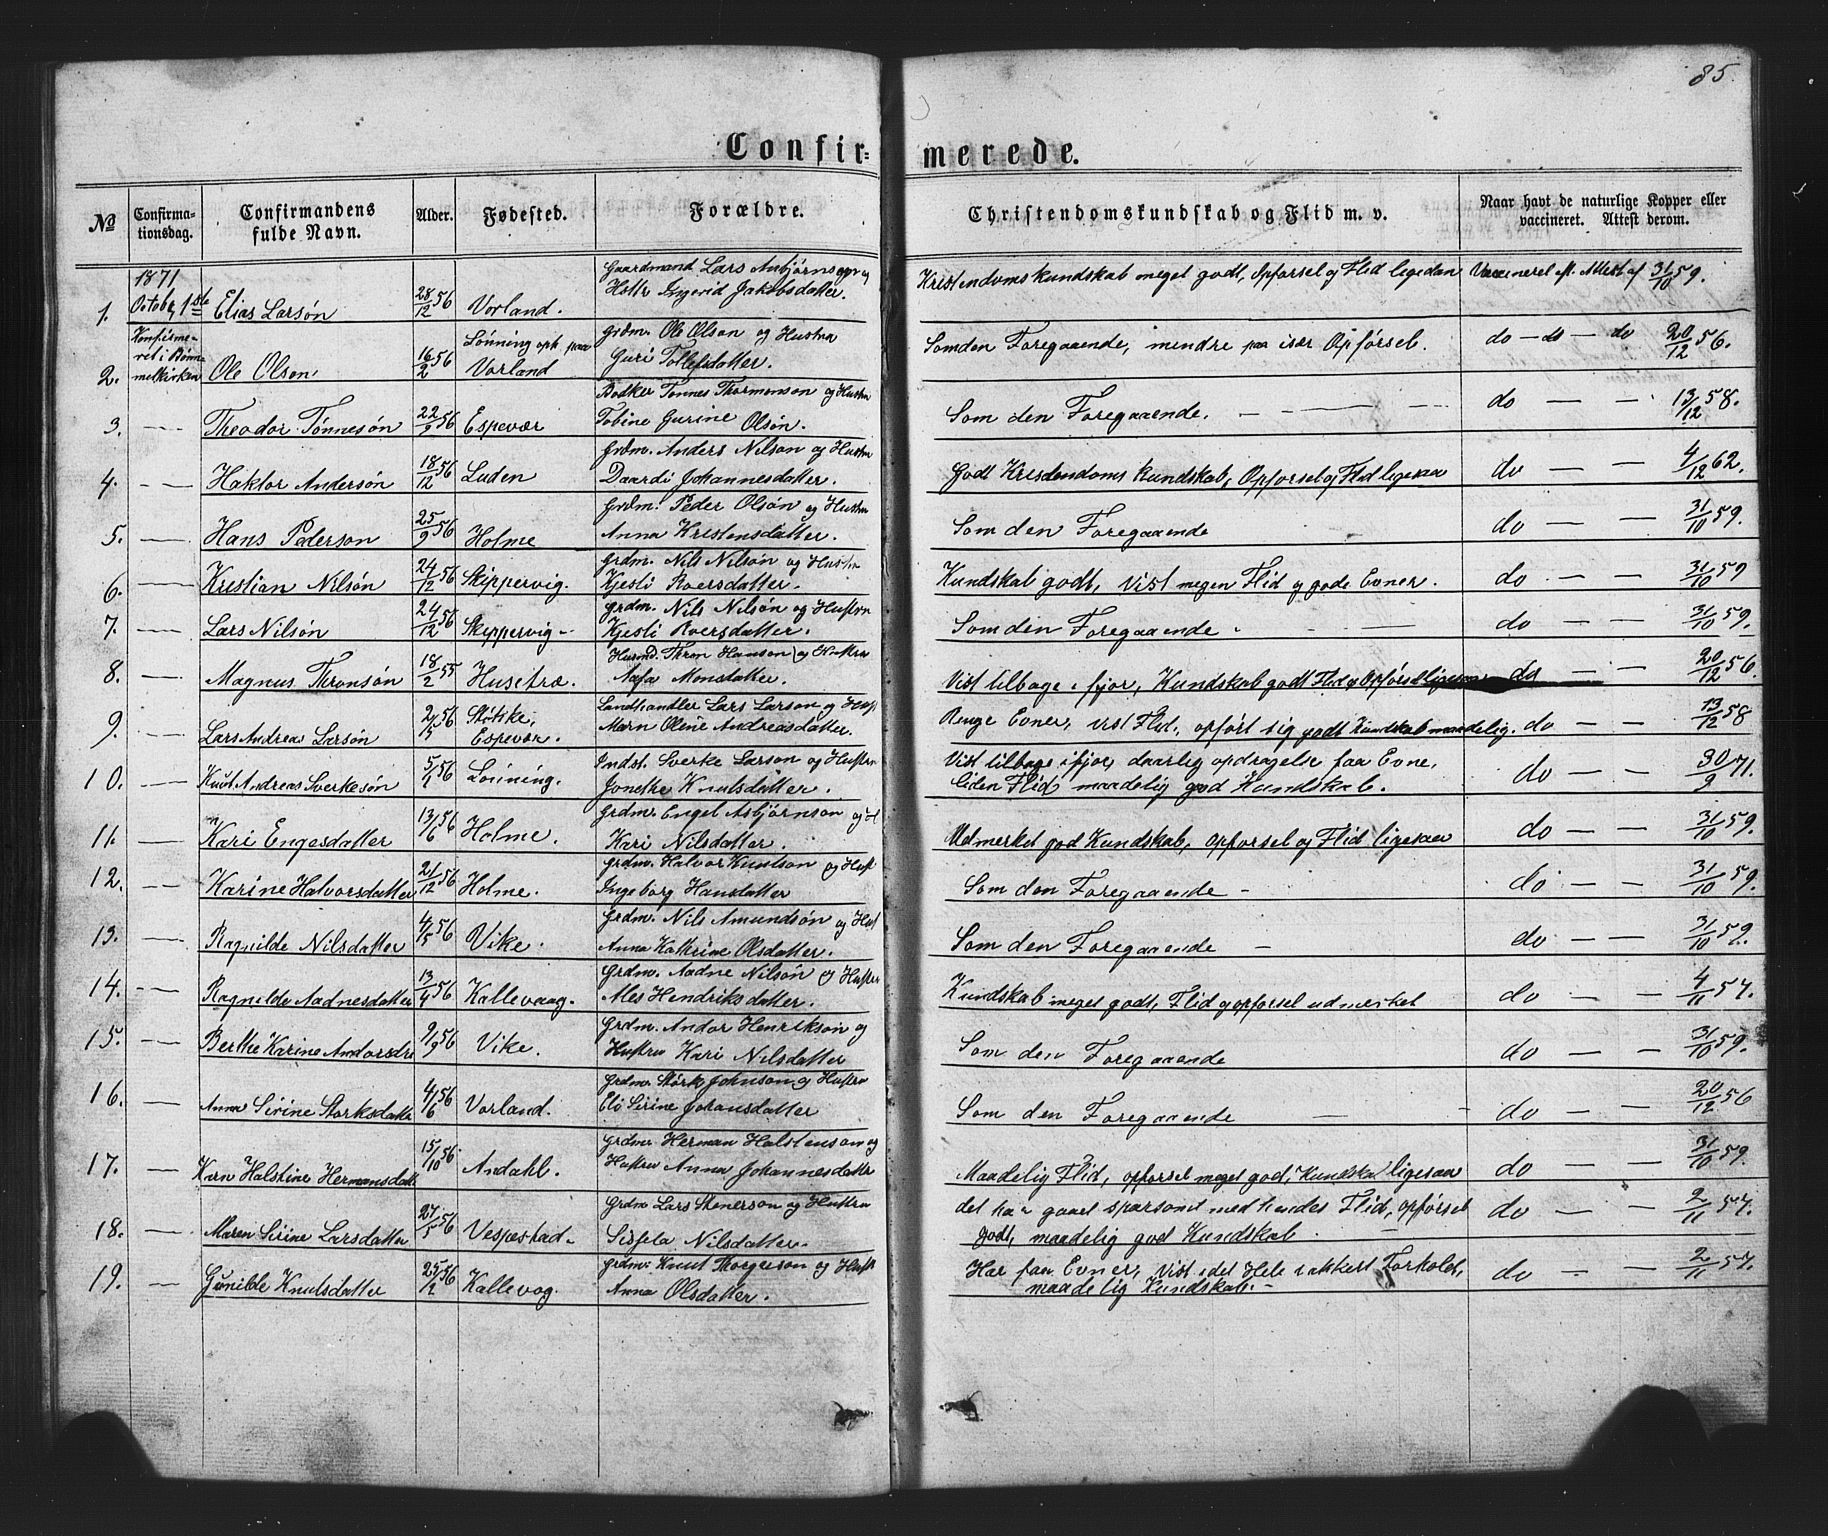 85.
Confir= merede.
No
Confirma-
tionsdag.
Confirmandens
fulde Navn.
Alder.
Fødested.
Forældre.
Christendomskundskab og Flid m. v.
Naar havt de naturlige Kopper eller
vaccineret. Attest derom.
1871
Gaardmand Lars Asbjørnson og
1. October 1ste Elias Larsøn 28/12 56 Vorland. Hustr Ingerid Jakobsdatter. Kristendomskundskab meget godt, Opførsel og Flid ligedan Vaccineret eft. Attest af 31/10 59.
Konfirme-
ret i Bøm-
melkirken
Lønning oph. paa grdm. Ole Olson og Hustru
2. Ole Olson 16/2 56 Vorland Guri Tollefsdatter. Som den Foregaaende, mindre paa især Opførsel. do — do — do 20/12 56.
Bødker Tønnes Thormenson og Hustru
3. — Theodor Tønnesøn 22/9 56 Espevær Tobine Gurine Olsøn. Som den Foregaaende. do — — 13/12 58.
Grdm. Anders Nilson og Hustru
4. — Haktor Andersøn 18/12 56 Luden Daardi Johannesdatter. Godt Kristendoms Kundskab, Opførsel og Flid ligesaa do — — 4/12 62.
Grdm. Peder Olsøn og Hustru
5. — Hans Pederson 25/9 56 Holme Anna Kristensdatter. Som den Foregaaende do — — 31/10 59.
Grdm. Nils Nilsøn og Hustru
6. — Kristian Nilsøn 24/12 56 Skippervig. Kjesti Roersdatter. Kundskab godt, Vist megen Flid og gode Evner. do — — 31/10 59
Grdm. Nils Nilsøn og Hustru
7. — Lars Nilsøn 24/12 56 Skippervig — Kjesti Roersdatter. Som den Foregaaende — do — — 31/10 59.
Husmd. Thron Hanson og Hustru
8. — Magnus Thronsøn 18/2 55 Husetræ. Aafa Monsdatter. Vist tilbage i fjor, Kundskab godt Flid og Opførsel ligesaa do — 20/12 56.
Støtike, Landhandler Lars Larson og Hust
9. — Lars Andreas Larsøn 2/5 56 Espevær. Marn Oline Andreasdatter. Ringe Evner, vist Flid, opført sig godt Kundskab maadelig. do — — 13/12 58
Indst. Sverke Larson og Hustru Vist tilbage i fjor, daarlig opdragelse faa Evne,
10. — Knut Andreas Sverkesøn 5/1 56 Lønning. Jonethe Knutsdatter. liden Flid maadelig god Kundskab. do — — 30/9 71.
Grdm. Engel Asbjørnson og H
11. — Kari Engesdatter 13/6 56 Holme. Kari Nilsdatter. Udmerket god Kundskab, Opførsel og Flid ligesaa do — — 31/10 59.
Grdm. Halvor Knutson og Hust
12. — Karine Halvorsdatter 21/12 56 Holme. Ingeborg Hansdatter Som den Foregaaende — do — — 31/10 59.
Grdm. Nils Amundsøn og Hust
13. — Ragnilde Nilsdatter 4/5 56 Vike. Anna Kathrine Olsdatter. Som den Foregaaende — do — — 31/10 59.
Grdm. Aadne Nilsøn og Hustru
14. — Ragnilde Aadnesdatter 13/4 56 Kallevaag. Ales Hendriksdatter. Kundskab meget godt, Flid og opførsel udmerket do — — 4/11 57.
Grdm. Andor Henrikson og
15. — Berthe Karine Andorsdtr 9/9 56 Vike. Hustru Kari Nilsdatter Som den Foregaaende do — — 31/10 59.
Grdm. Størk Johnson og Hustru
16. — Anna Sirine Størksdatter 4/6 56 Vorland. Eli Sirine Johansdatter Som den Foregaaende — do — — 20/12 56
Grdm. Herman Halstenson og
17. — Karn Halstine Hermansdatt 15/10 56 Andahl. Hustru Anna Johannesdatter Maadelig Flid, opførsel meget god, Kundskab ligesaa do — — 31/10 59.
Grdm Lars Stenerson og Hustru det har gaaet sparsomt med hendes Flid, opførsel
18. — Maren Sirine Larsdatter 27/5 56 Vespestad. Sissela Nilsdatter. godt, maadelig god Kundskab. do — — 2/11 57.
Grdm. Knut Thorgerson og Hust Har faa Evner, Vist i det Hele i akkert Forhold,
19. — Gunilde Knutsdatter 25/12 56 Kallevog. Anna Olsdatter. maadelig Kundskab. — do — — 2/11 57.